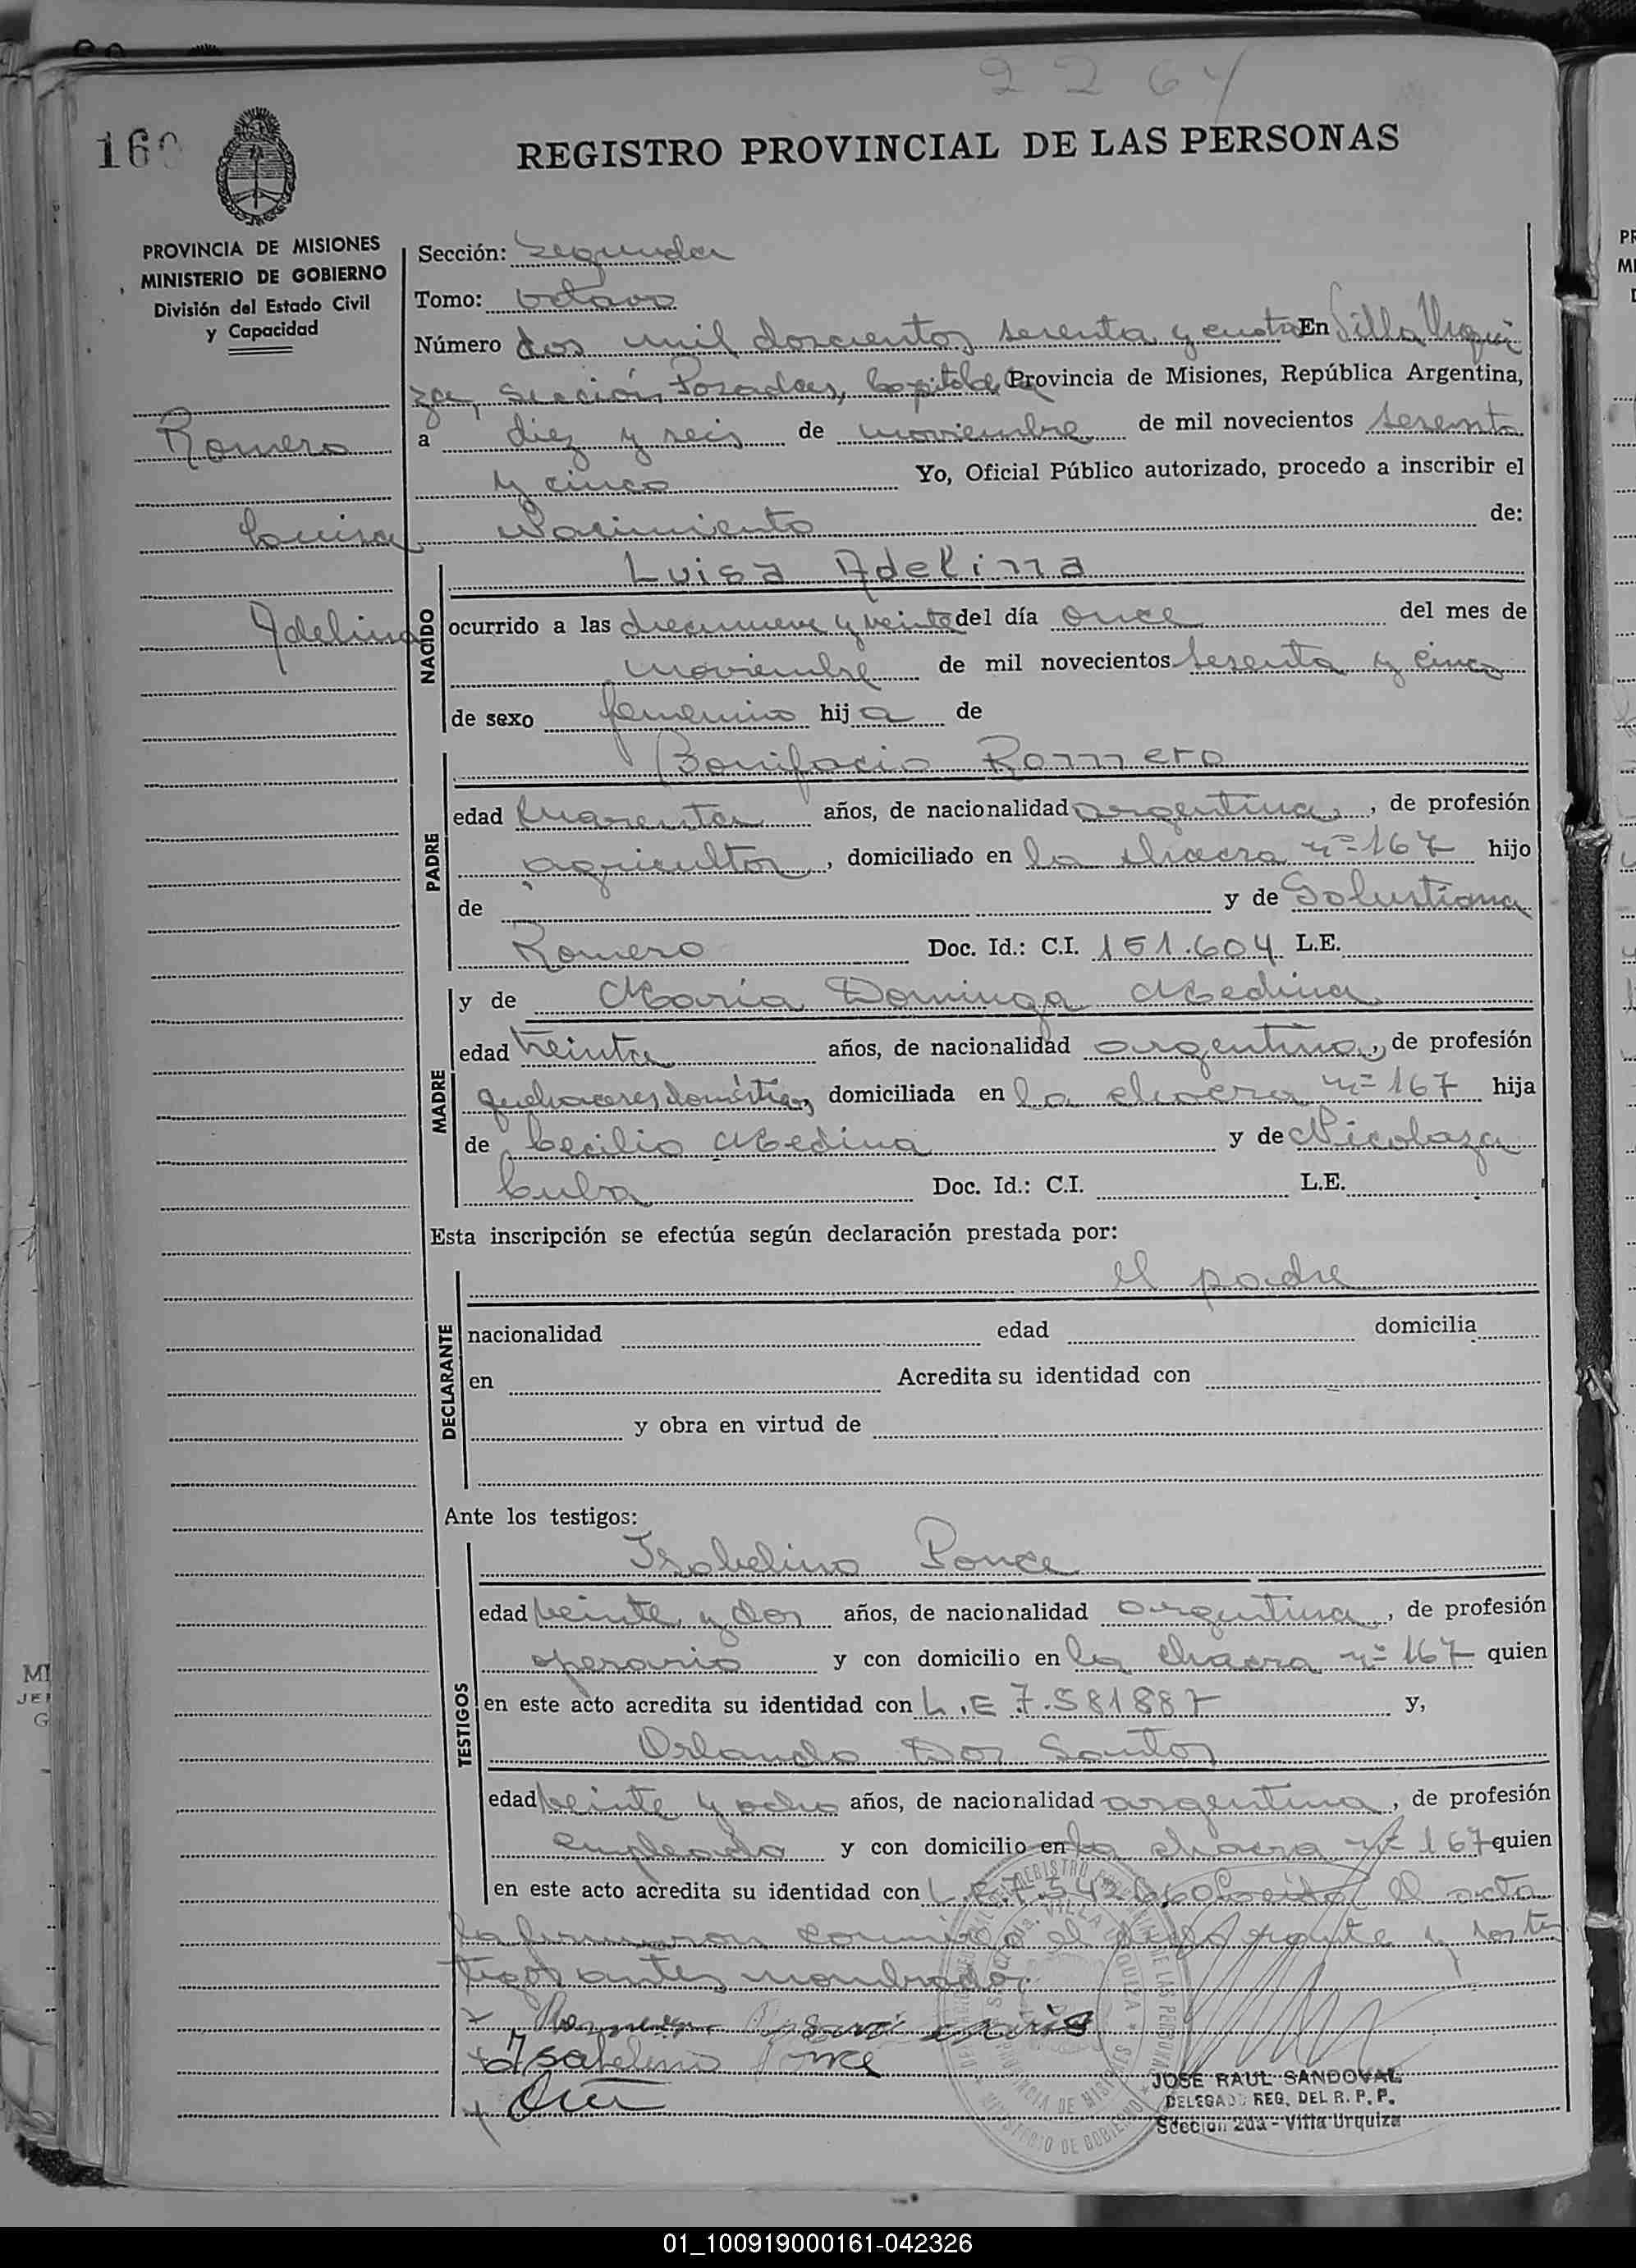 2264
160
REGISTRO PROVINCIAL DE LAS PERSONAS
PROVINCIA DE MISIONES
MINISTERIO DE GOBIERNO
División del Estado Civil
y Capacidad
Romero
Luisa
Adelina
Sección: Segunda
Tomo: Octavo
Número dos mil doscientos sesenta y cuatro En Villa Urqui
za, Sección Posadas, Capital de la Provincia de Misiones, República Argentina,
a diez y seis de noviembre de mil novecientos sesenta
y cinco Yo, Oficial Público autorizado, procedo a inscribir el
Nacimiento de:
NACIDO
Luisa Adelina
ocurrido a las diecinueve y veinte del día once del mes de
noviembre de mil novecientos sesenta y cinco
de sexo femenino hija de
PADRE
Bonifacio Romero
edad cuarenta años, de nacionalidad argentina, de profesión
agricultor, domiciliado en la chacra nº 167 hijo
de y de Solustiana
Romero Doc. Id.: C.I. 151.604 L.E.
MADRE
y de María Dominga Medina
edad treinta años, de nacionalidad argentina, de profesión
quehaceres domésticos, domiciliada en la chacra nº 167 hija
de Cecilio Medina y de Nicolaza
Cuba Doc. Id.: C.I. L.E.
Esta inscripción se efectúa según declaración prestada por:
DECLARANTE
el padre
nacionalidad edad domicilia
en Acredita su identidad con
y obra en virtud de
Ante los testigos:
TESTIGOS
Isabelino Ponce
edad veinte y dos años, de nacionalidad argentina, de profesión
operario y con domicilio en la chacra nº 167 quien
en este acto acredita su identidad con L.E 7.581887 y,
Orlando Dos Santos
edad veinte y ocho años, de nacionalidad argentina, de profesión
empleado y con domicilio en la chacra nº 167 quien
en este acto acredita su identidad con L.E.7.542.660 Leída el acta
la firmaron conmigo el declarante y los tes
tigos antes nombrados.
Isabelino Ponce
JOSE RAUL SANDOVAL
DELEGADO REG. DEL R. P. P.
Sección 2da - Villa Urquiza
01_100919000161-042326